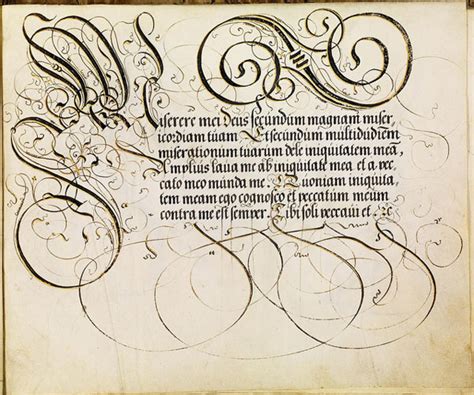 Miserere mei Deus secundum magnam miser
icordiam tuam Et secundum multidudinem
miserationum tuarum dele iniquitatem meā
Amplius laua me ab iniquitate mea et a pec
cato meo munda me Quoniam iniquita
tem meam ego cognosco et peccatum meum
contra me est semper Tibi soli peccaui et